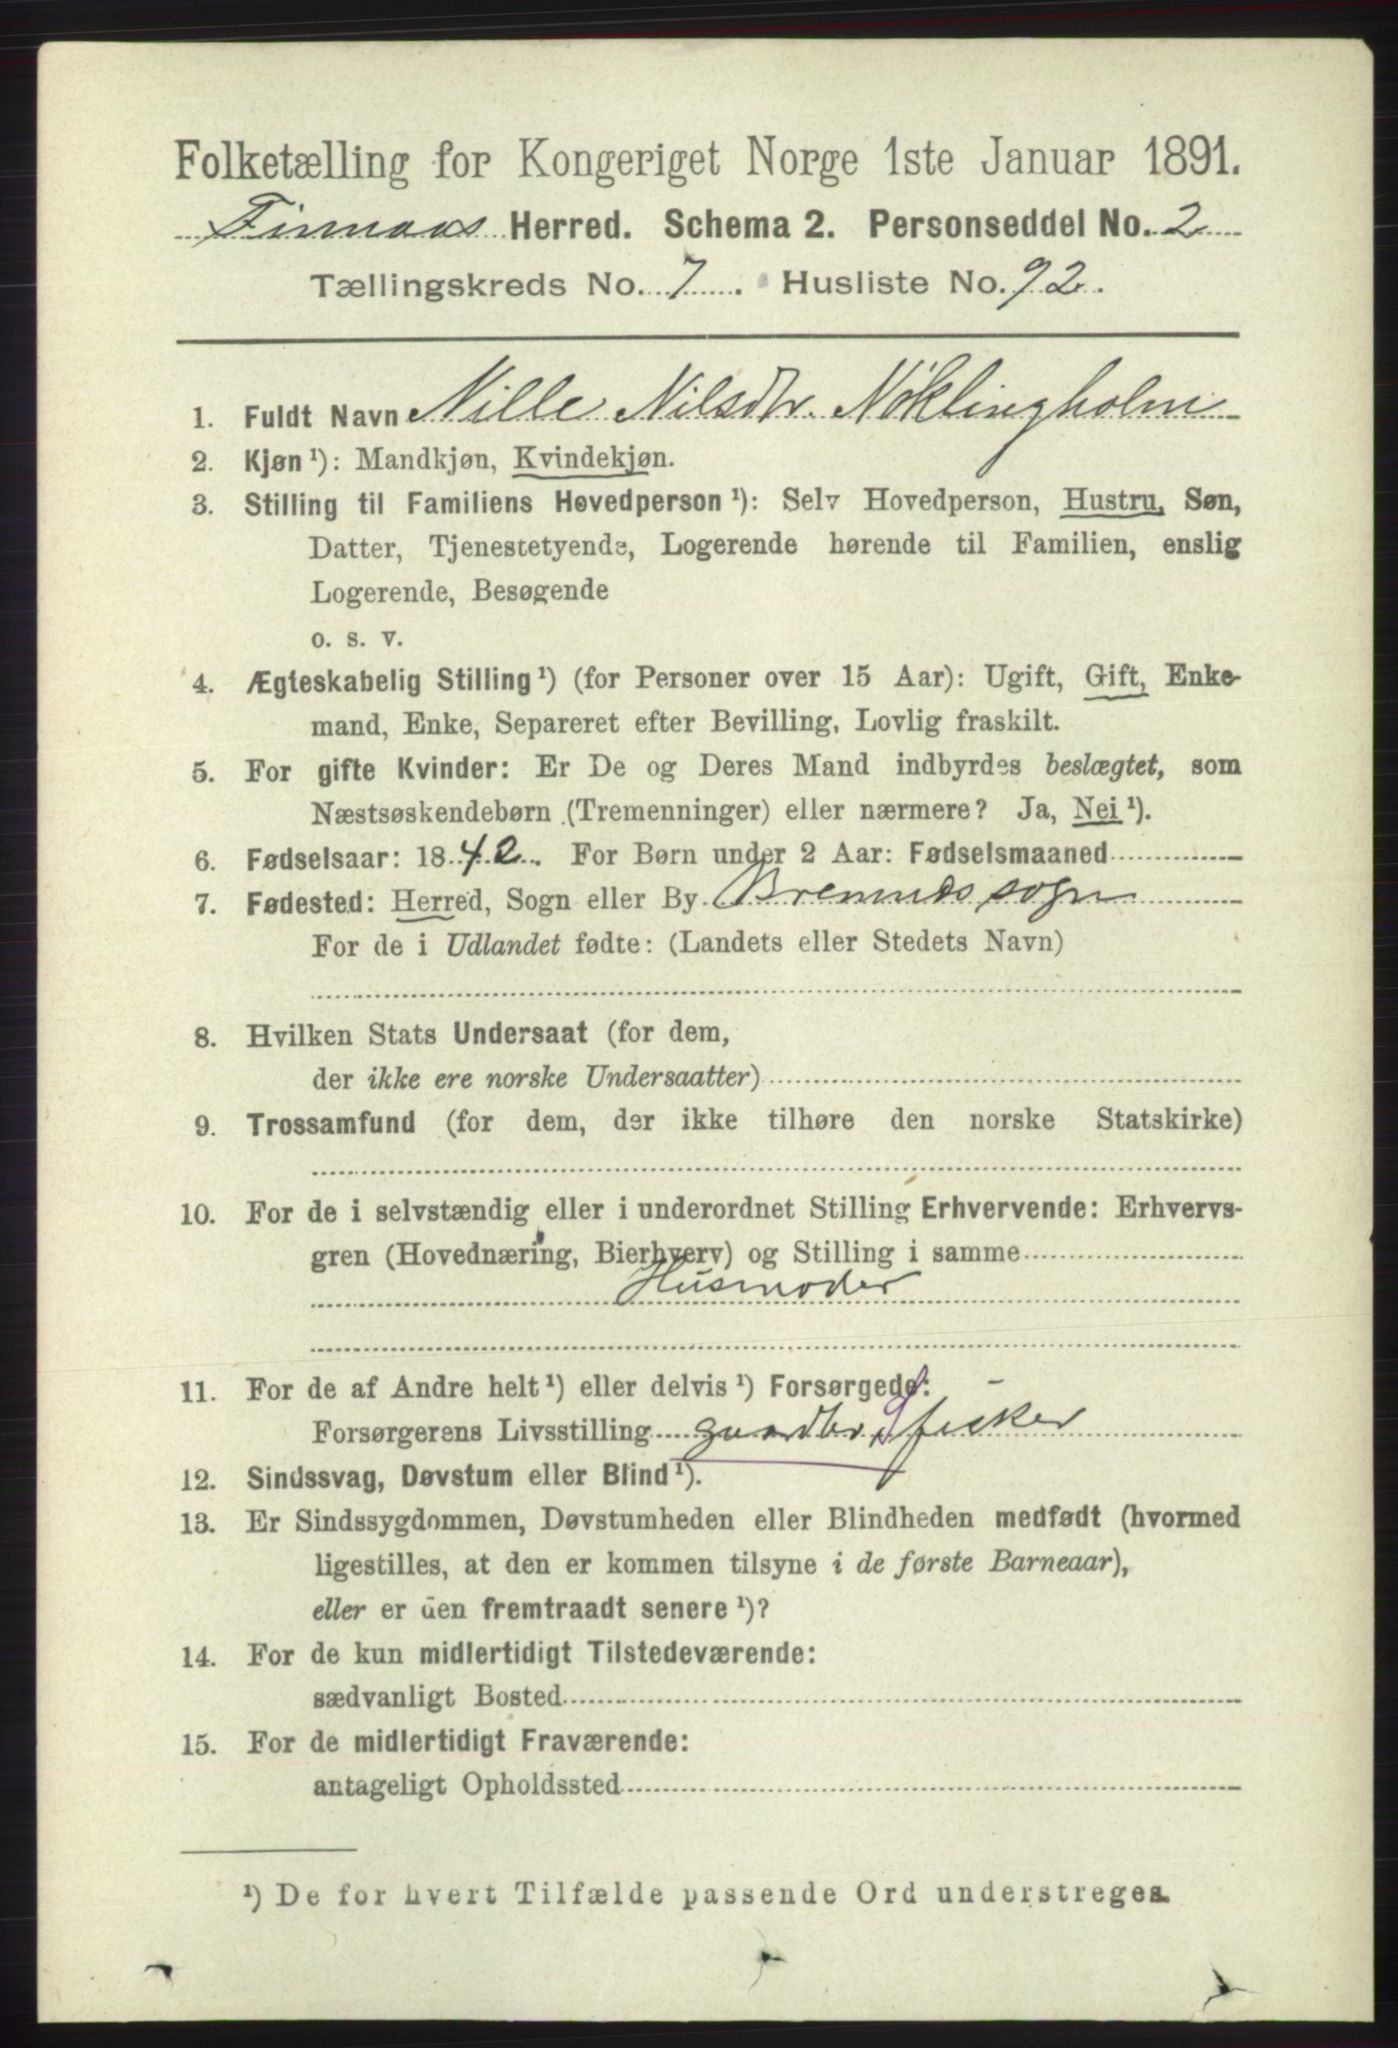 Folketælling for Kongeriget Norge 1ste Januar 1891.
Finnaas Herred. Schema 2. Personseddel No. 2
Tællingskreds No. 7. Husliste No. 92.
1. Fuldt Navn Nille Nilsdtr. Nøklingholm
2. Kjøn ¹): Mandkjøn, Kvindekjøn.
3. Stilling til Familiens Hovedperson ¹): Selv Hovedperson, Hustru, Søn,
Datter, Tjenestetyende, Logerende hørende til Familien, enslig
Logerende, Besøgende
o. s. v.
4. Ægteskabelig Stilling ¹) (for Personer over 15 Aar): Ugift, Gift, Enke-
mand, Enke, Separeret efter Bevilling, Lovlig fraskilt.
5. For gifte Kvinder: Er De og Deres Mand indbyrdes beslægtet, som
Næstsøskendebørn (Tremenninger) eller nærmere? Ja, Nei ¹).
6. Fødselsaar: 1842. For Børn under 2 Aar: Fødselsmaaned
7. Fødested: Herred, Sogn eller By Bremnds sogn
For de i Udlandet fødte: (Landets eller Stedets Navn)
8. Hvilken Stats Undersaat (for dem,
der ikke ere norske Undersaatter)
9. Trossamfund (for dem, der ikke tilhøre den norske Statskirke)
10. For de i selvstændig eller i underordnet Stilling Erhvervende: Erhvervs-
gren (Hovednæring, Bierhverv) og Stilling i samme
Husmoder
11. For de af Andre helt ¹) eller delvis ¹) Forsørgede:
Forsørgerens Livsstilling gaardbr fisker
12. Sindssvag, Døvstum eller Blind ¹).
13. Er Sindssygdommen, Døvstumheden eller Blindheden medfødt (hvormed
ligestilles, at den er kommen tilsyne i de første Barneaar),
eller er den fremtraadt senere ¹)?
14. For de kun midlertidigt Tilstedeværende:
sædvanligt Bosted
15. For de midlertidigt Fraværende:
antageligt Opholdssted
¹) De for hvert Tilfælde passende Ord understreges.